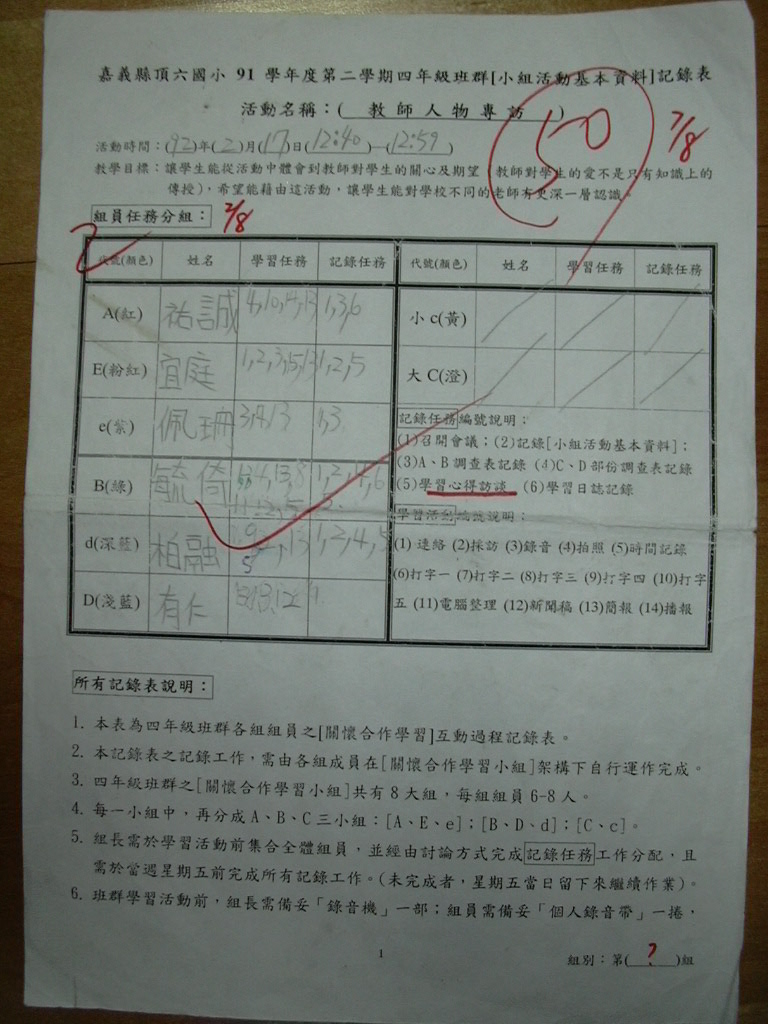 嘉義縣頂六國小 91 學年度第二學期四年級班群[小組活動基本資料]記錄表
活動名稱：( 教師人物專訪 )
50
7/8
活動時間：(92)年(2)月(17)日(12:40)—(12:59)
教學目標：讓學生能從活動中體會到教師對學生的關心及期望 教師對學生的愛不是只有知識上的
傳授)，希望能藉由這活動，讓學生能對學校不同的老師有更深一層認識。
組員任務分組：
代號(顏色) 姓名 學習任務 記錄任務 代號(顏色) 姓名 學習任務 記錄任務
A(紅) 祐誠 4,10,14,13 1,3,6 小 c(黃)
E(粉紅) 宜庭 1,2,3,15,13 1,2,5 大 C(澄)
e(紫) 佩珊 1,3
B(綠) 毓倚 1,2,4,6
d(深藍) 柏融 1,2,4,5
D(淺藍) 有仁
記錄任務編號說明：
(1)召開會議；(2)記錄[小組活動基本資料]；
(3)A、B 調查表記錄 (4)C、D 部份調查表記錄
(5)學習心得訪談 (6)學習日誌記錄
學習活動編號說明：
(1) 連絡 (2)採訪 (3)錄音 (4)拍照 (5)時間記錄
(6)打字一 (7)打字二 (8)打字三 (9)打字四 (10)打字
五 (11)電腦整理 (12)新聞稿 (13)簡報 (14)播報
所有記錄表說明：
1. 本表為四年級班群各組組員之[關懷合作學習]互動過程記錄表。
2. 本記錄表之記錄工作，需由各組成員在[關懷合作學習小組]架構下自行運作完成。
3. 四年級班群之[關懷合作學習小組]共有 8 大組，每組組員 6-8 人。
4. 每一小組中，再分成 A、B、C 三小組：[A、E、e]；[B、D、d]；[C、c]。
5. 組長需於學習活動前集合全體組員，並經由討論方式完成記錄任務工作分配，且
需於當週星期五前完成所有記錄工作。(未完成者，星期五當日留下來繼續作業)。
6. 班群學習活動前，組長需備妥「錄音機」一部；組員需備妥「個人錄音帶」一捲，
1
組別：第(?)組